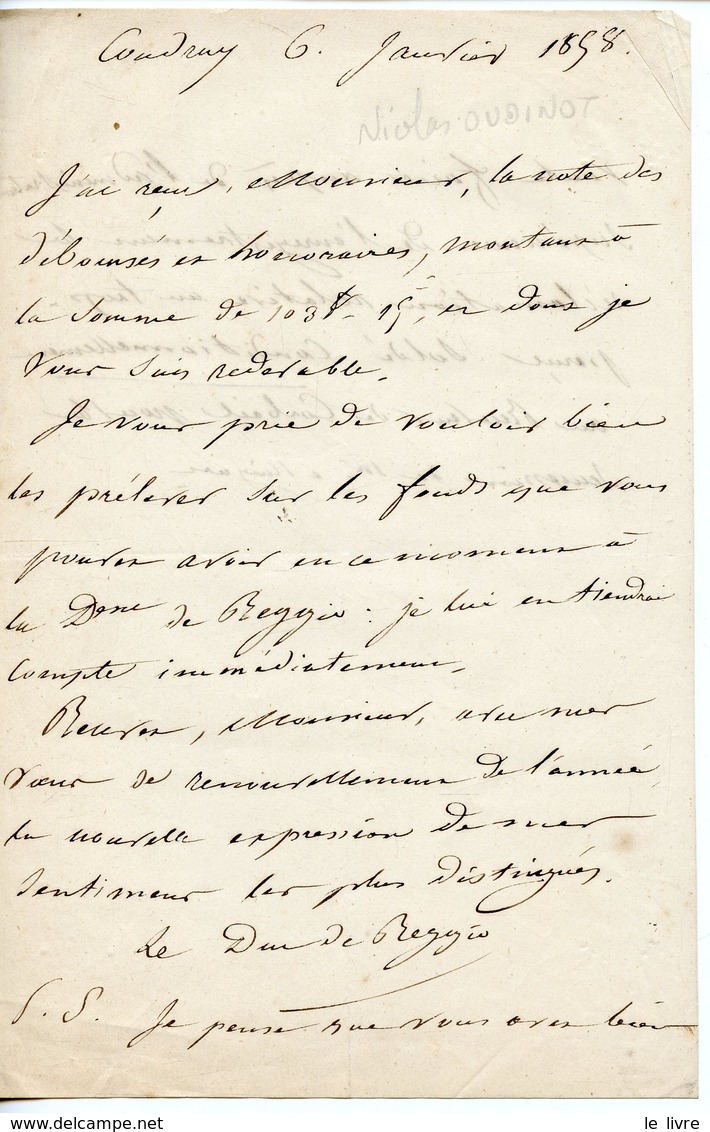 Coudray 6. Janvier 1858.
J'ai reçu, Monsieur, la note des
déboursés et honoraires, montant à
la Somme de 103f-15c, et dont je
vous suis redevable.
Je vous prie de vouloir bien
les prélever sur les fonds que vous
pouvez avoir en ce moment à
la Dsse de Reggio : je lui en tiendrai
compte immédiatement.
Recevez, Monsieur, avec mes
vœux de renouvellement de l'année,
la nouvelle expression de mes
sentimens les plus distingués.
Le Duc de Reggio
P. S. Je pense que vous avez bien
le livre